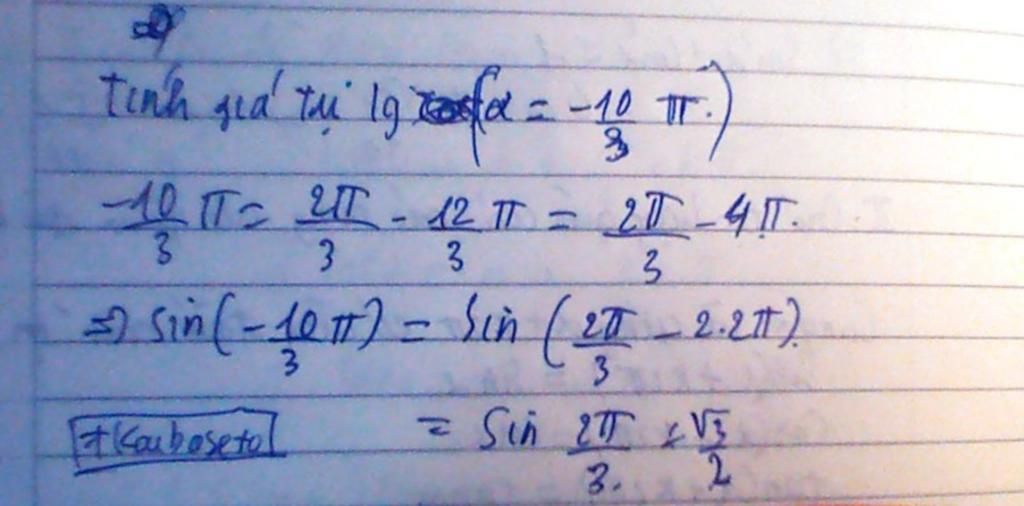 Tính giá trị lg (α = -10/3 π.)
-10/3 π = 2π/3 - 12/3 π = 2π/3 - 4π.
=> sin(-10/3 π) = sin (2π/3 - 2.2π).
= sin 2π/3. = √3/2